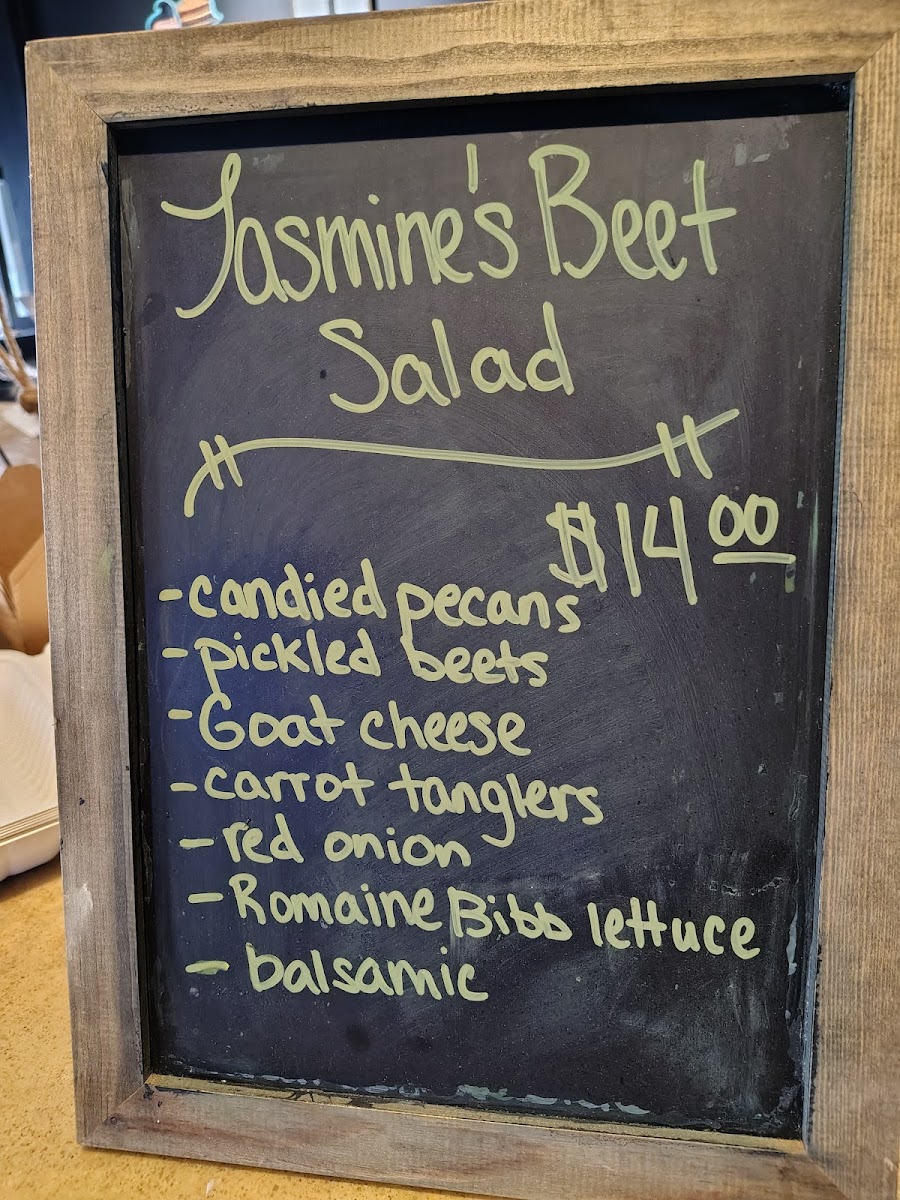 Jasmine's Beet
Salad
$14.00
- candied pecans
- pickled beets
- Goat cheese
- carrot tanglers
- red onion
- Romaine Bibb lettuce
- balsamic